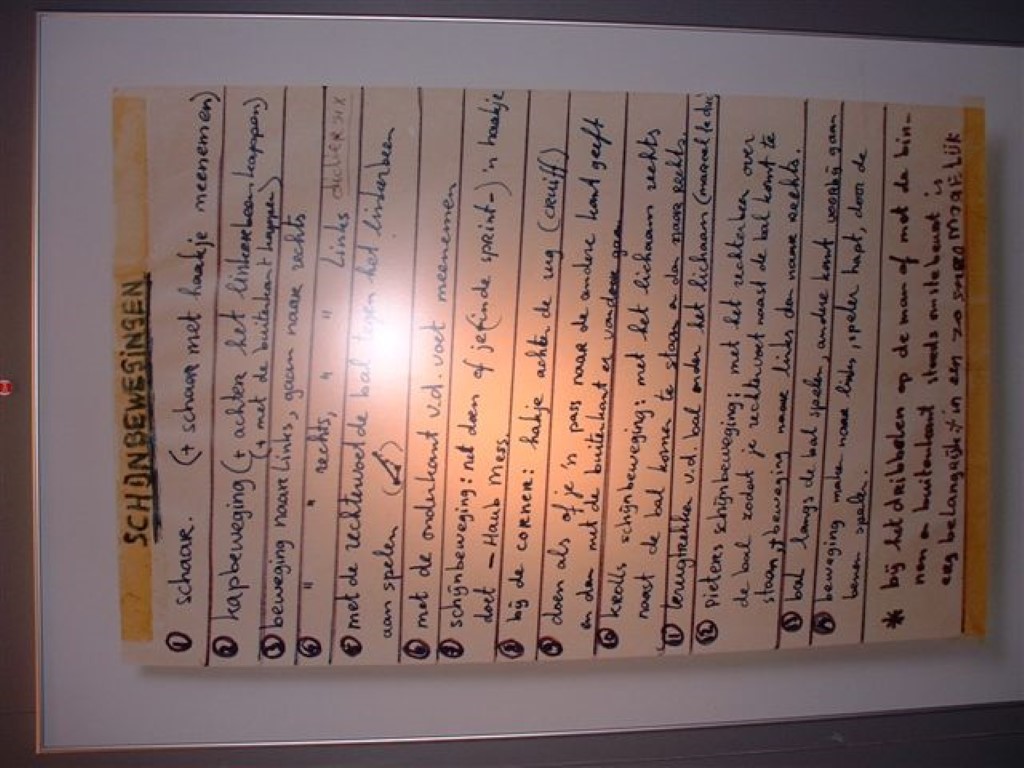 SCHIJNBEWEGINGEN
① schaar. (+ schaar met haakje meenemen)
② kapbeweging (+ achter het linkerbeen kappen)
(+ met de buitenkant kappen)
③ beweging naar links, gaan naar rechts
④ " " rechts, " " links
⑤ met de rechtervoet de bal tegen het linkerbeen
aan spelen
⑥ met de onderkant v.d. voet meenemen
⑦ schijnbeweging: net doen of je (in de sprint-) 'n haakje
doet - Haub Mess.
⑧ bij de corner: hakje achter de rug (CRUIFF)
⑨ doen als of je 'n pass naar de andere kant geeft
en dan met de buitenkant er vandoor gaan
⑩ Kerlls schijnbeweging: met het lichaam rechts
naast de bal komen te staan en dan naar rechts.
⑪ terugtrekken v.d. bal onder het lichaam
⑫ Pieters schijnbeweging: met het rechterbeen over
de bal zodat je rechtervoet naast de bal komt te
staan, + beweging naar links dan naar rechts.
⑬ bal langs de bal spelen, andere kant voorbij gaan
⑭ beweging maken naar links, speler hapt, door de
benen spelen.
* bij het dribbelen op de man of met de bin-
nen en buitenkant steeds
eeg belangrijk: in een zo snel mogelijk